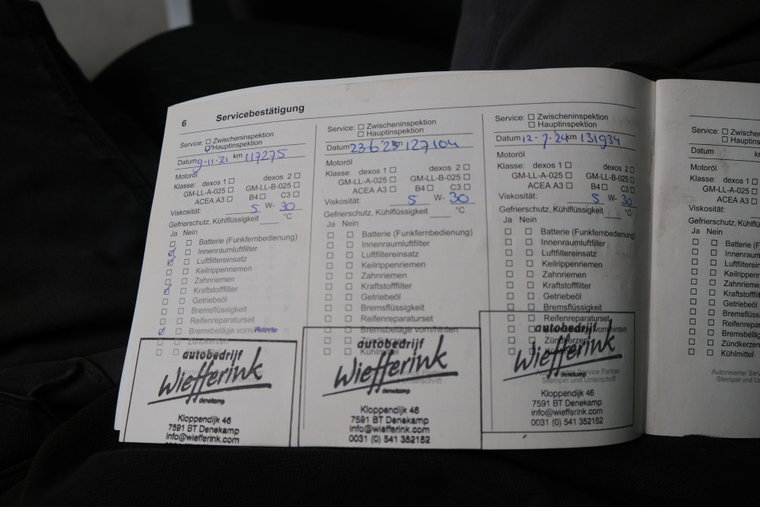 6 Servicebestätigung
Service: ☐ Zwischeninspektion
☑ Hauptinspektion
Datum 9-11-21 km 117275
Motoröl
Klasse: dexos 1 ☐ dexos 2 ☐
GM-LL-A-025 ☐ GM-LL-B-025 ☐
ACEA A3 ☐ B4 ☐ C3 ☐
Viskosität: 5 W- 30
Gefrierschutz, Kühlflüssigkeit °C
Ja Nein
☐ ☐ Batterie (Funkfernbedienung)
☑ ☐ Innenraumluftfilter
☑ ☐ Luftfiltereinsatz
☐ ☐ Keilrippenriemen
☐ ☐ Zahnriemen
☑ ☐ Kraftstofffilter
☐ ☐ Getriebeöl
☐ ☐ Bremsflüssigkeit
☐ ☐ Reifenreparaturset
☑ ☐ Bremsbeläge vorn/
autobedrijf
Wiefferink
denekamp
Kloppendijk 46
7591 BT Denekamp
info@wiefferink.com
0031 (0) 541 352152
Service: ☐ Zwischeninspektion
☐ Hauptinspektion
Datum 23-6-23 km 127104
Motoröl
Klasse: dexos 1 ☐ dexos 2 ☐
GM-LL-A-025 ☐ GM-LL-B-025 ☐
ACEA A3 ☐ B4 ☐ C3 ☐
Viskosität: 5 W- 30
Gefrierschutz, Kühlflüssigkeit °C
Ja Nein
☐ ☐ Batterie (Funkfernbedienung)
☐ ☐ Innenraumluftfilter
☐ ☐ Luftfiltereinsatz
☐ ☐ Keilrippenriemen
☐ ☐ Zahnriemen
☐ ☐ Kraftstofffilter
☐ ☐ Getriebeöl
☐ ☐ Bremsflüssigkeit
☐ ☐ Reifenreparaturset
☐ ☐ Bremsbeläge vorn/hinten
☐ ☐ Kühlmittel
autobedrijf
Wiefferink
denekamp
Kloppendijk 46
7591 BT Denekamp
info@wiefferink.com
0031 (0) 541 352152
Service: ☐ Zwischeninspektion
☐ Hauptinspektion
Datum 12-7-24 km 131934
Motoröl
Klasse: dexos 1 ☐ dexos 2 ☐
GM-LL-A-025 ☐ GM-LL-B-025 ☐
ACEA A3 ☐ B4 ☐ C3 ☐
Viskosität: 5 W- 30
Gefrierschutz, Kühlflüssigkeit °C
Ja Nein
☐ ☐ Batterie (Funkfernbedienung)
☐ ☐ Innenraumluftfilter
☐ ☐ Luftfiltereinsatz
☐ ☐ Keilrippenriemen
☐ ☐ Zahnriemen
☐ ☐ Kraftstofffilter
☐ ☐ Getriebeöl
☐ ☐ Bremsflüssigkeit
☐ ☐ Reifenreparaturset
☐ ☐ Bremsbeläge vorn/hinten
☐ ☐ Zündkerzen
☐ ☐ Kühlmittel
Service Partner
Stempel und Unterschrift
autobedrijf
Wiefferink
denekamp
Kloppendijk 46
7591 BT Denekamp
info@wiefferink.com
0031 (0) 541 352152
Service: ☐ Zwischeninspektion
☐ Hauptinspektion
Datum km
Motoröl
Klasse: dexos 1 ☐
GM-LL-A-025 ☐
ACEA A3 ☐
Viskosität:
Gefrierschutz, Kühlflüssig
Ja Nein
☐ ☐ Batterie (F
☐ ☐ Innenraum
☐ ☐ Luftfilterei
☐ ☐ Keilrippen
☐ ☐ Zahnrieme
☐ ☐ Kraftstofffi
☐ ☐ Getriebeöl
☐ ☐ Bremsflüss
☐ ☐ Reifenrepar
☐ ☐ Bremsbeläg
☐ ☐ Zündkerzen
☐ ☐ Kühlmittel
Autorisierter Serv
Stempel und Unt